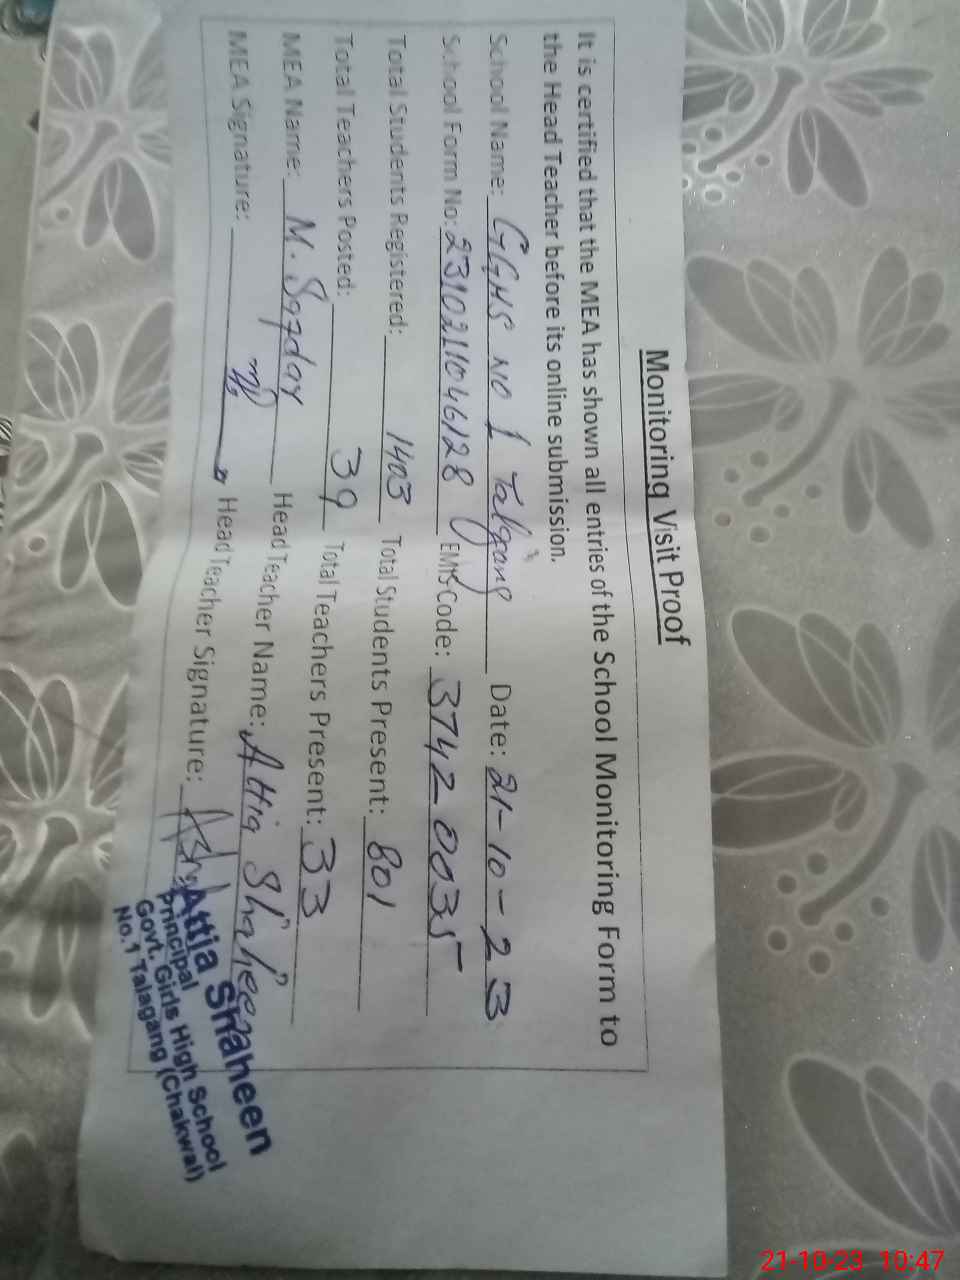 Monitoring Visit Proof
It is certified that the MEA has shown all entries of the School Monitoring Form to
the Head Teacher before its online submission.
School Name: GGHS NO 1 Talgang Date: 21-10-23
School Form No: 2310211046128 EMIS Code: 37420035
Total Students Registered: 1403 Total Students Present: 801
Total Teachers Posted: 39 Total Teachers Present: 33
MEA Name: M. Safdar Head Teacher Name: Attia Shaheen
MEA Signature: Head Teacher Signature:
Attia Shaheen
Principal
Govt. Girls High School
No.1 Talagang (Chakwal)
21-10-23 10:47